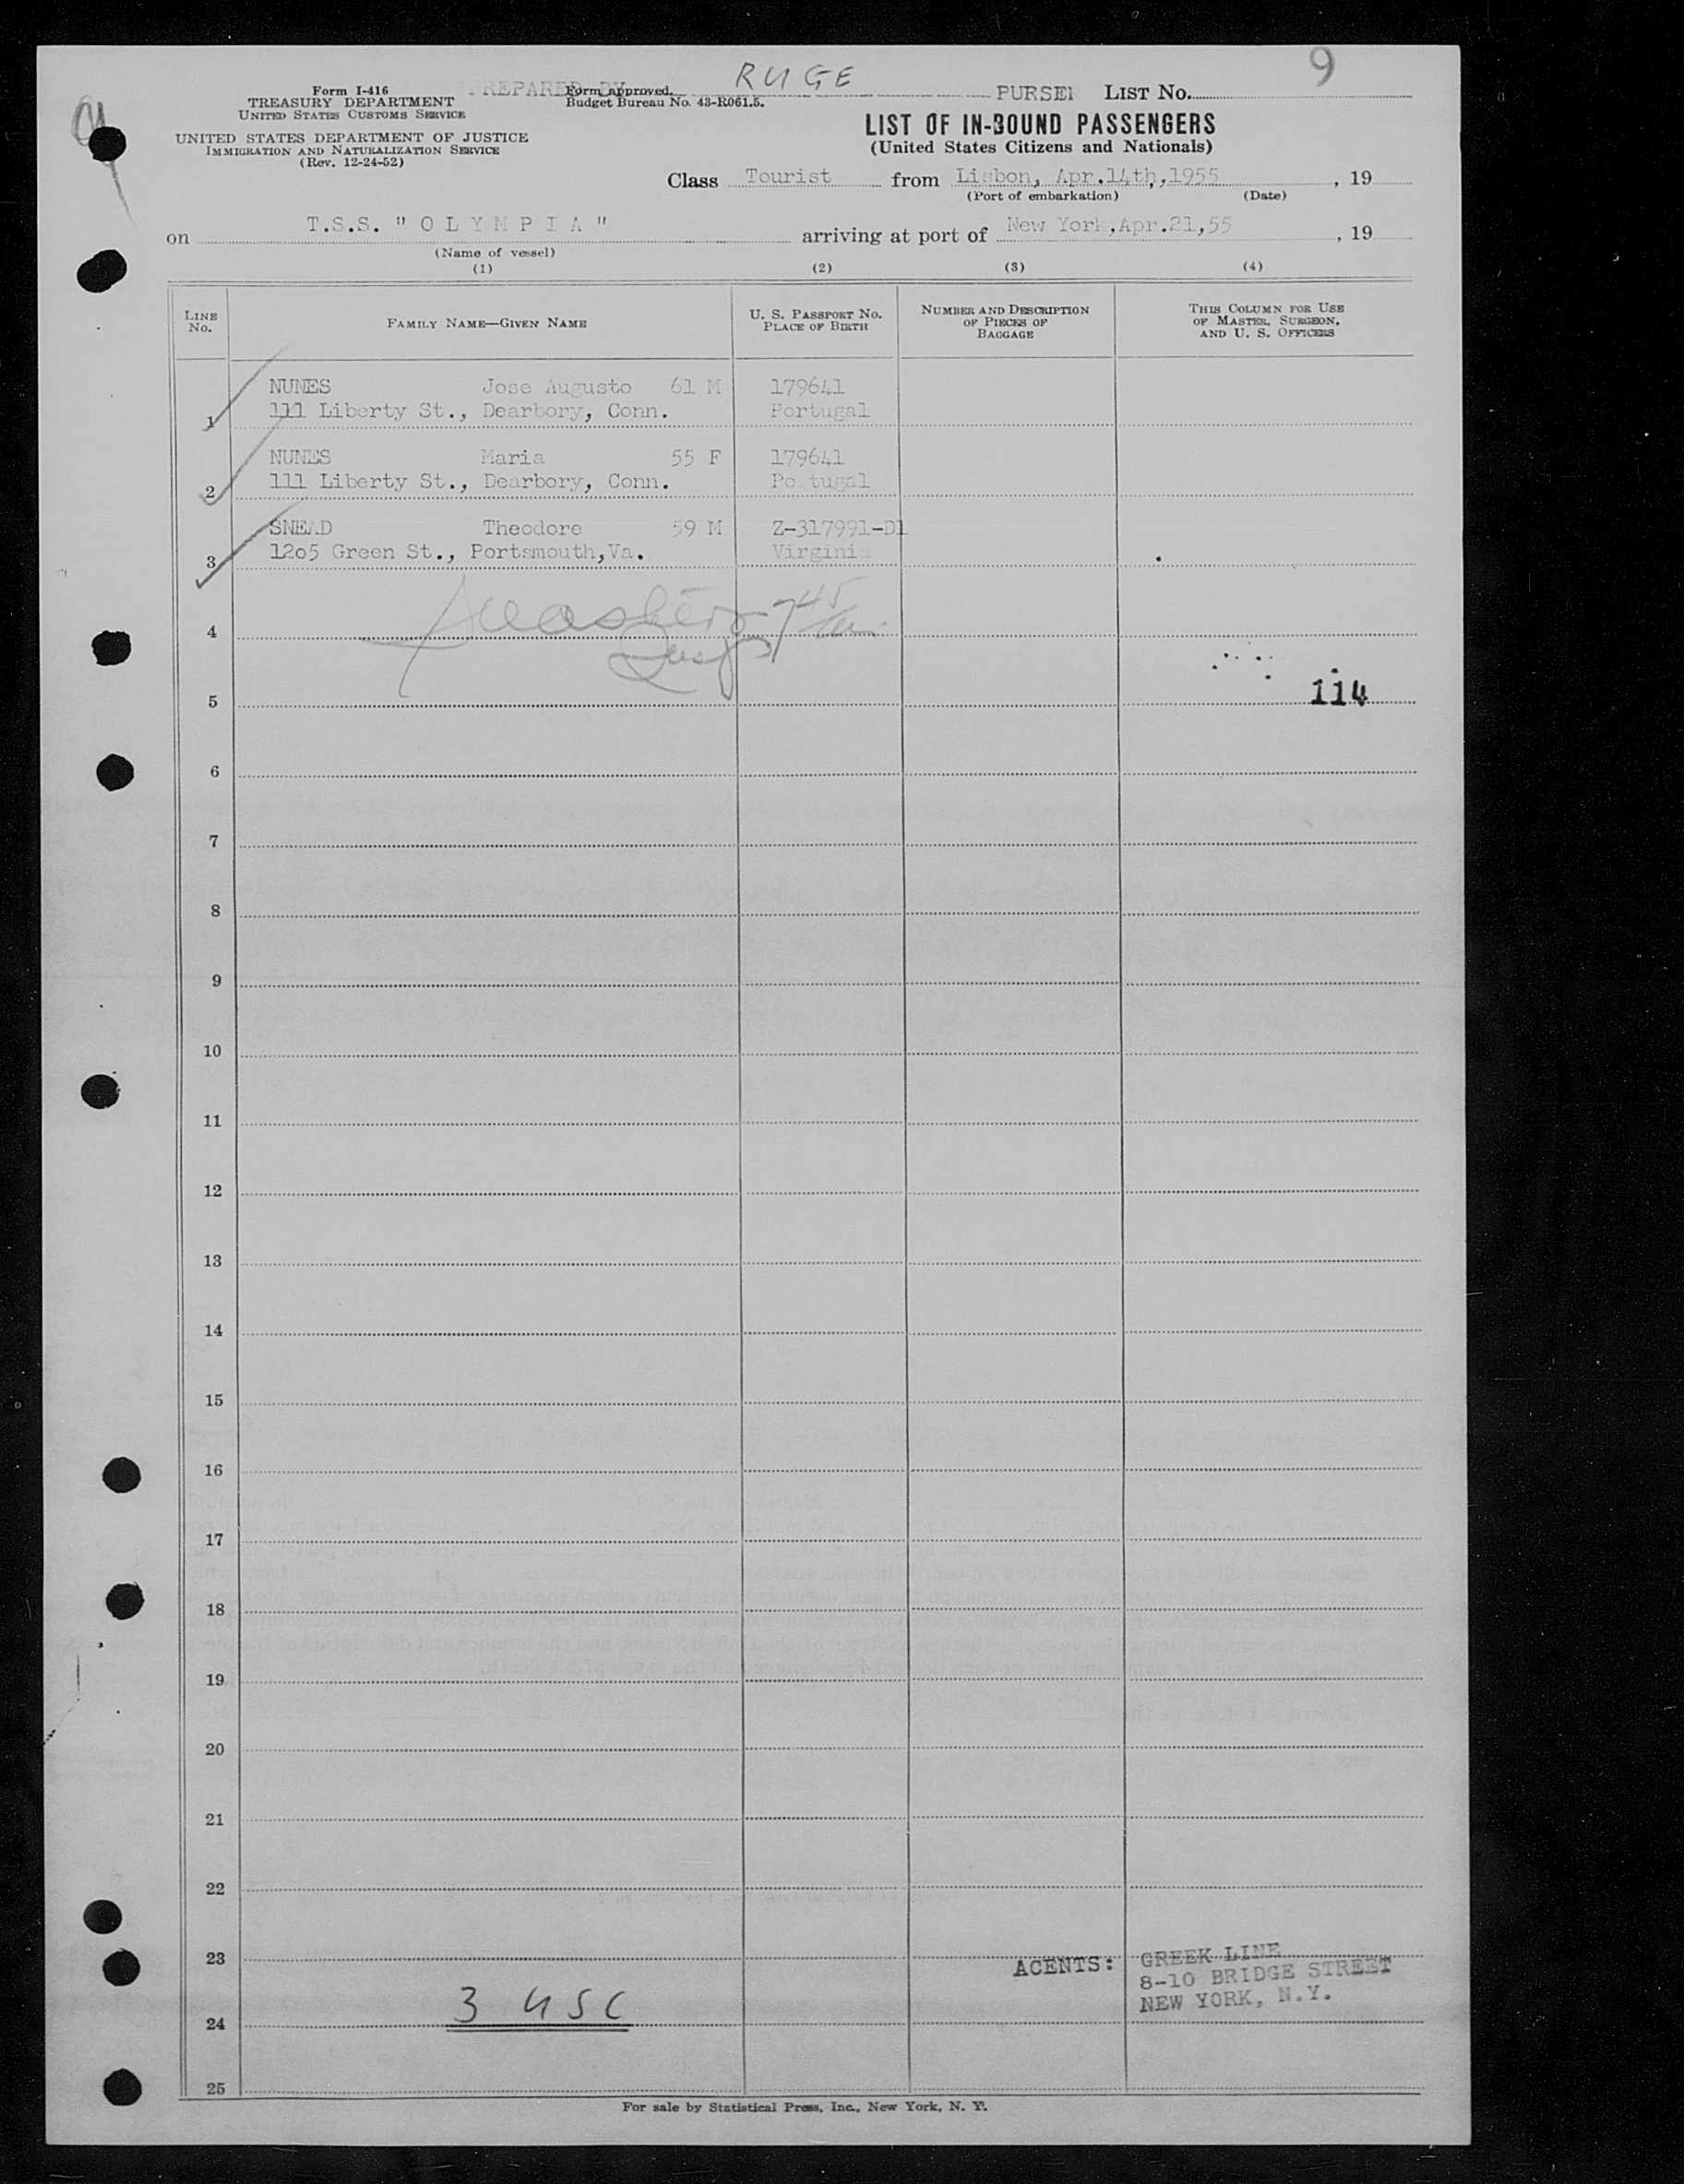 9
RUGE
Form I-416
TREASURY DEPARTMENT
UNITED STATES CUSTOMS SERVICE
UNITED STATES DEPARTMENT OF JUSTICE
IMMIGRATION AND NATURALIZATION SERVICE
(Rev. 12-24-52)
PREPARED BY
Form approved.
Budget Bureau No. 43-R061.5.
PURSER LIST No.
LIST OF IN-BOUND PASSENGERS
(United States Citizens and Nationals)
Class Tourist from Lisbon, Apr.14th,1955 , 19
(Port of embarkation) (Date)
on T.S.S. " O L Y M P I A " arriving at port of New York,Apr.21,55 , 19
(Name of vessel)
(1) (2) (3) (4)
LINE No. FAMILY NAME—GIVEN NAME U. S. PASSPORT No. PLACE OF BIRTH NUMBER AND DESCRIPTION OF PIECES OF BAGGAGE THIS COLUMN FOR USE OF MASTER, SURGEON, AND U. S. OFFICERS
NUNES Jose Augusto 61 M 179641
1 111 Liberty St., Dearbory, Conn. Portugal
NUNES Maria 55 F 179641
2 111 Liberty St., Dearbory, Conn. Portugal
SNEAD Theodore 59 M Z-317991-D1
3 1205 Green St., Portsmouth,Va. Virginia
4
5 114
6
7
8
9
10
11
12
13
14
15
16
17
18
19
20
21
22
23 AGENTS: GREEK LINE
8-10 BRIDGE STREET
NEW YORK, N.Y.
3 USC
24
25
For sale by Statistical Press, Inc., New York, N. Y.